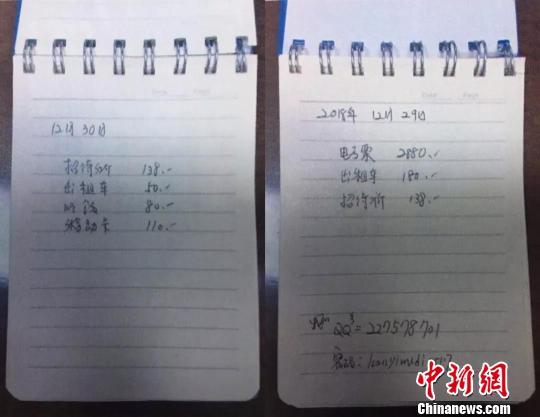 12月 30日
招待所 138.-
出租车 50.-
吃饭 80.-
移动卡 110.-
Date Page
2018年 12月 29日
电子票 2880.-
出租车 180.-
招待所 138.-
QQ号=227578701
密码:
中新网
Chinanews.com